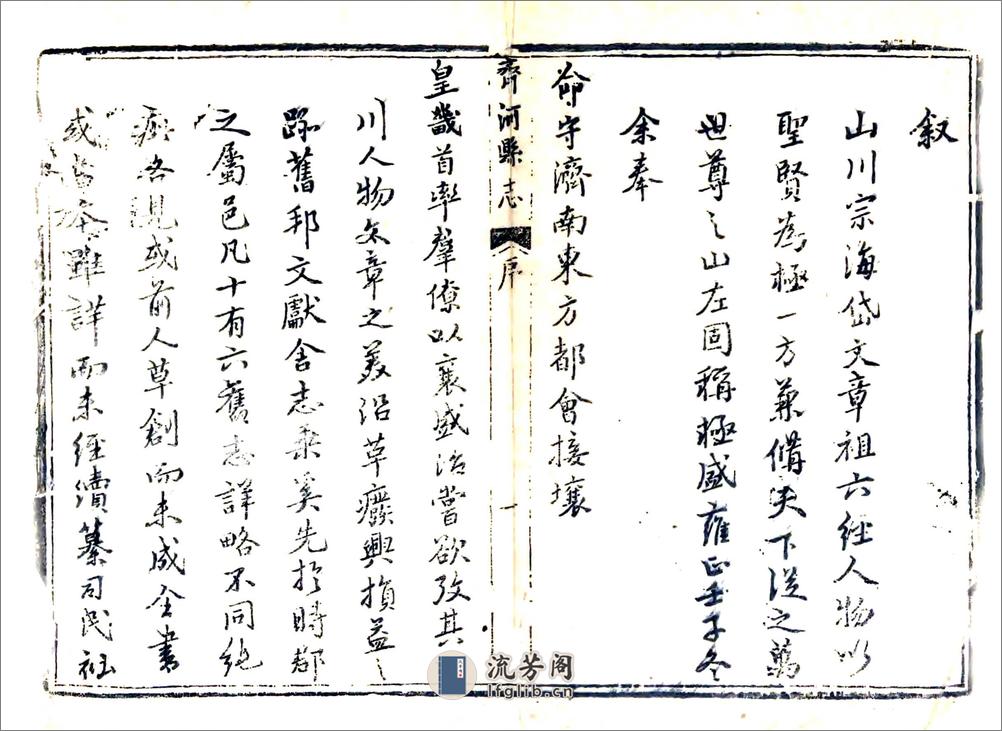 叙
山川宗海岱文章祖六經人物以
聖賢為極一方兼備天下從之萬
世尊之山左固稱極盛雍正壬子冬
余奉
命守濟南東方都會接壤
齊河縣志 序 一
皇畿首率羣僚以襄盛治嘗欲攷其
川人物文章之美沿草癈興損益之
蹟舊邦文獻舍志乘奚先於時郡
之屬邑凡十有六舊志詳略不同純
疵各見或前人草創而未成全書
或 雖詳而未經續纂司民社
流芳阁
lfglib.cn